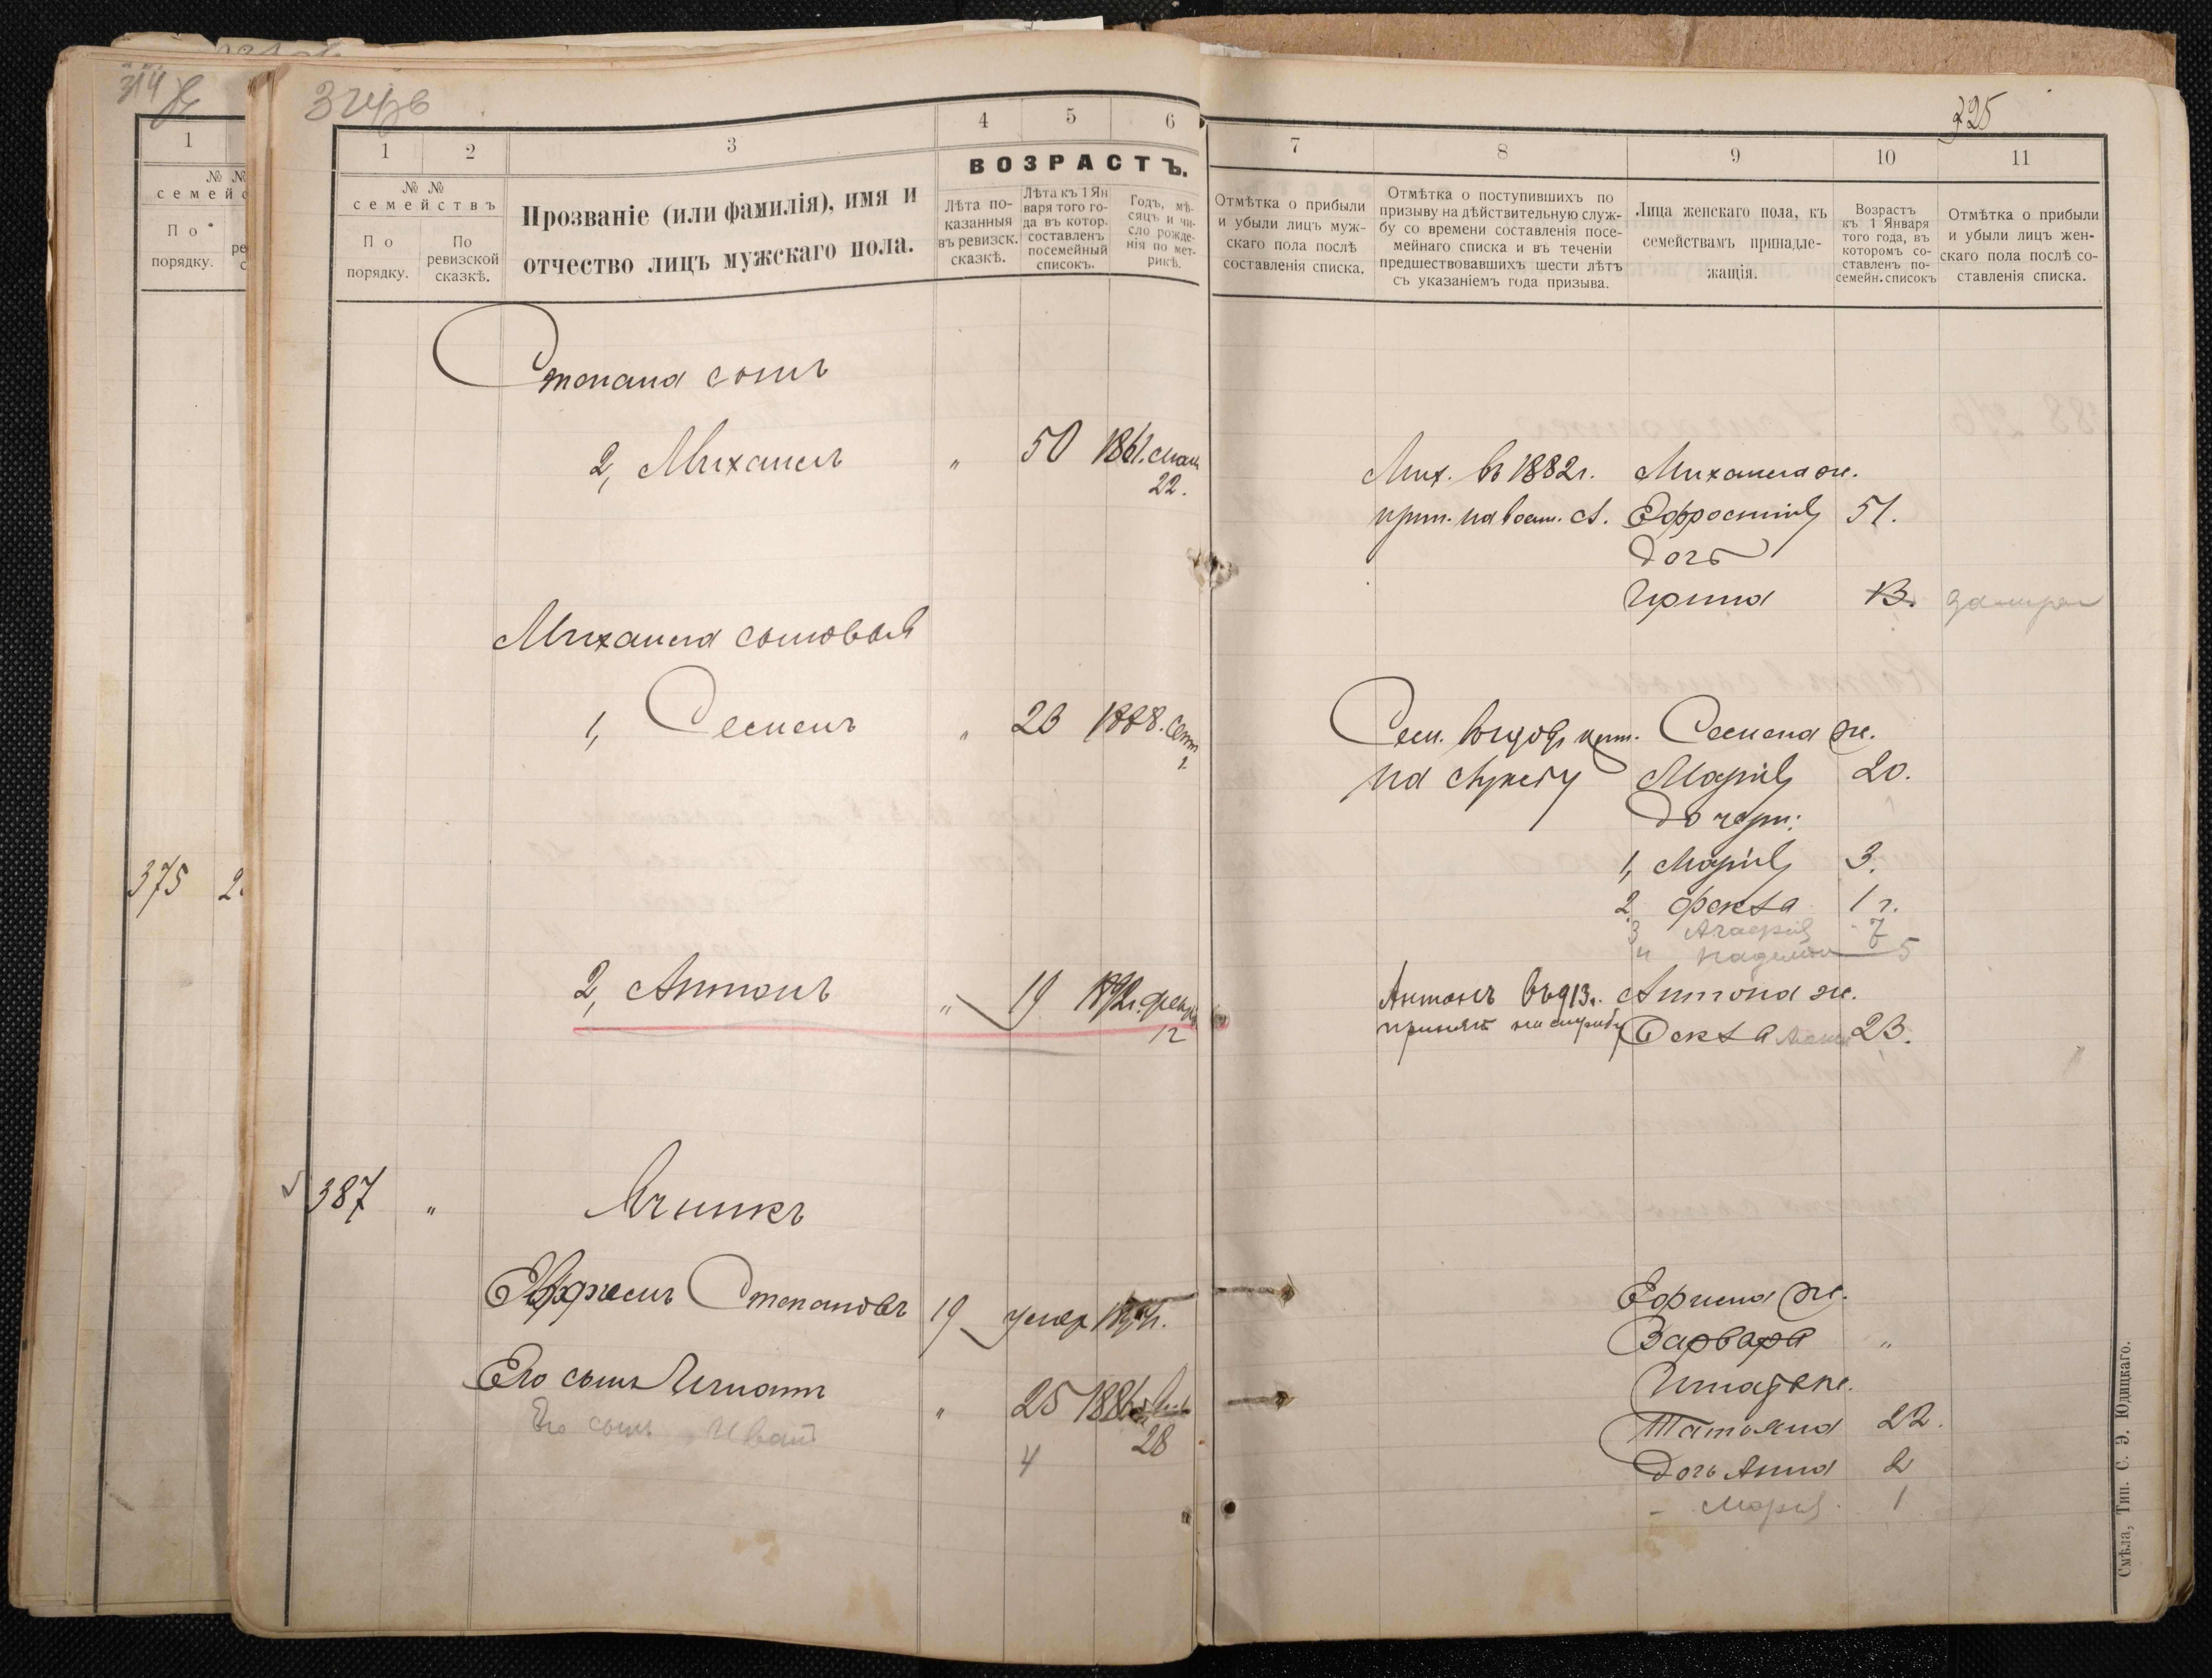 314
1
№ №
семейс
По
порядку.
375
325
1
2
3
4
5
6
№ №
семействъ
По
порядку.
По
ревизской
сказкѣ.
Прозваніе (или фамилія), имя и
отчество лицъ мужскаго пола.
ВОЗРАСТЪ.
Лѣта по-
казанныя
въ ревизск.
сказкѣ.
Лѣта къ 1 Ян
варя того го-
да въ котор.
составленъ
посемейный
списокъ.
Годъ, мѣ-
сяцъ и чи-
сло рожде-
нія по мет-
рикѣ.
7
8
9
10
11
Отмѣтка о прибыли
и убыли лицъ муж-
скаго пола послѣ
составленія списка.
Отмѣтка о поступившихъ по
призыву на дѣйствительную служ-
бу со времени составленія посе-
мейнаго списка и въ теченіи
предшествовавшихъ шести лѣтъ
съ указаніемъ года призыва.
Лица женскаго пола, къ
семействамъ принадле-
жащія.
Возрастъ
къ 1 Января
того года, въ
которомъ со-
ставленъ по-
семейн. списокъ
Отмѣтка о прибыли
и убыли лицъ жен-
скаго пола послѣ со-
ставленія списка.
Степана сынъ
2, Михаилъ " 50 1861.
22.
Мих. въ 1882 г. Михаила ж.
Ефросинія 51.
дочь
Ирина 13.
Михаила сыновья
1, Семенъ " 23 1888. Сент
Сем. Семена ж.
на службу Марія 20.
дочери:
1, Марія 3.
2, Фекла 1 г.
3 7
4 5
2, Антонъ " 19 1892г. февр
12
Антонъ въ 913 г. Антона ж.
принятъ на службу Фекла 23.
387 "
Ефремъ Степановъ 19 умер
Ефрема ж.
Варвара "
Его сынъ Игнатъ " 25
28
Игната ж.
Татьяна 22.
Его сынъ Иванъ 4
дочь Анна 2
- Марія. 1
Смѣла, Тип. С. Э. Юдицкаго.